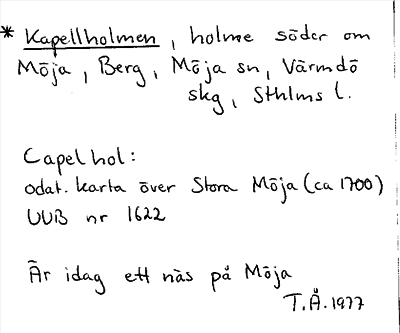 * Kapellholmen, holme söder om
Möja, Berg, Möja sn, Värmdö
skg, Sthlms l.
Capel hol:
odat. karta över Stora Möja (ca 1700)
UUB nr 1622
Är idag ett näs på Möja
T.Å. 1977